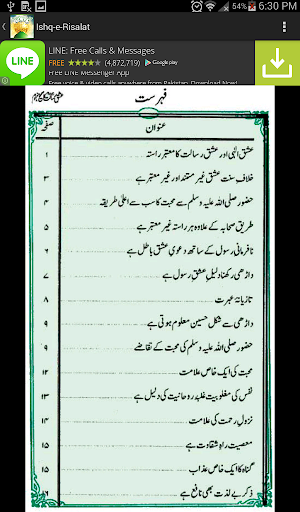 6:30 PM
Ishq-e-Risalat
LINE: Free Calls & Messages
FREE ★★★★★ (4,872,719) Google play
Free LINE Messenger App
Free voice & video calls anywhere from Pakistan. Download Now!
LINE
فہرست
عنوان صفحہ
عشق الٰہی اور عشق رسالت کا معتبر راستہ ۱
خلاف سنت عشق غیر مستند اور غیر معتبر ہے ۳
حضور صلی اللہ علیہ وسلم سے محبت کا سب سے اعلیٰ طریقہ ۴
طریق صحابہ کے علاوہ ہر راستہ غیر معتبر ہے ۵
نافرمانی رسول کے ساتھ دعویٰ عشق باطل ہے ۶
داڑھی رکھنا دلیل عشق رسول ہے ۷
تازیانۂ عبرت ۸
داڑھی سے شکل حسین معلوم ہوتی ہے ۹
حضور صلی اللہ علیہ وسلم کی محبت کے تقاضے ۹
محبت کی ایک خاص علامت ۱۲
نفس کی مغلوبیت غلبۂ روحانیت کی دلیل ہے ۱۳
نزول رحمت کی علامت ۱۴
معصیت راہ شقاوت ہے ۱۵
گناہ کا ایک خاص عذاب ۱۵
ذکر بے لذت بھی نافع ہے ۱۶